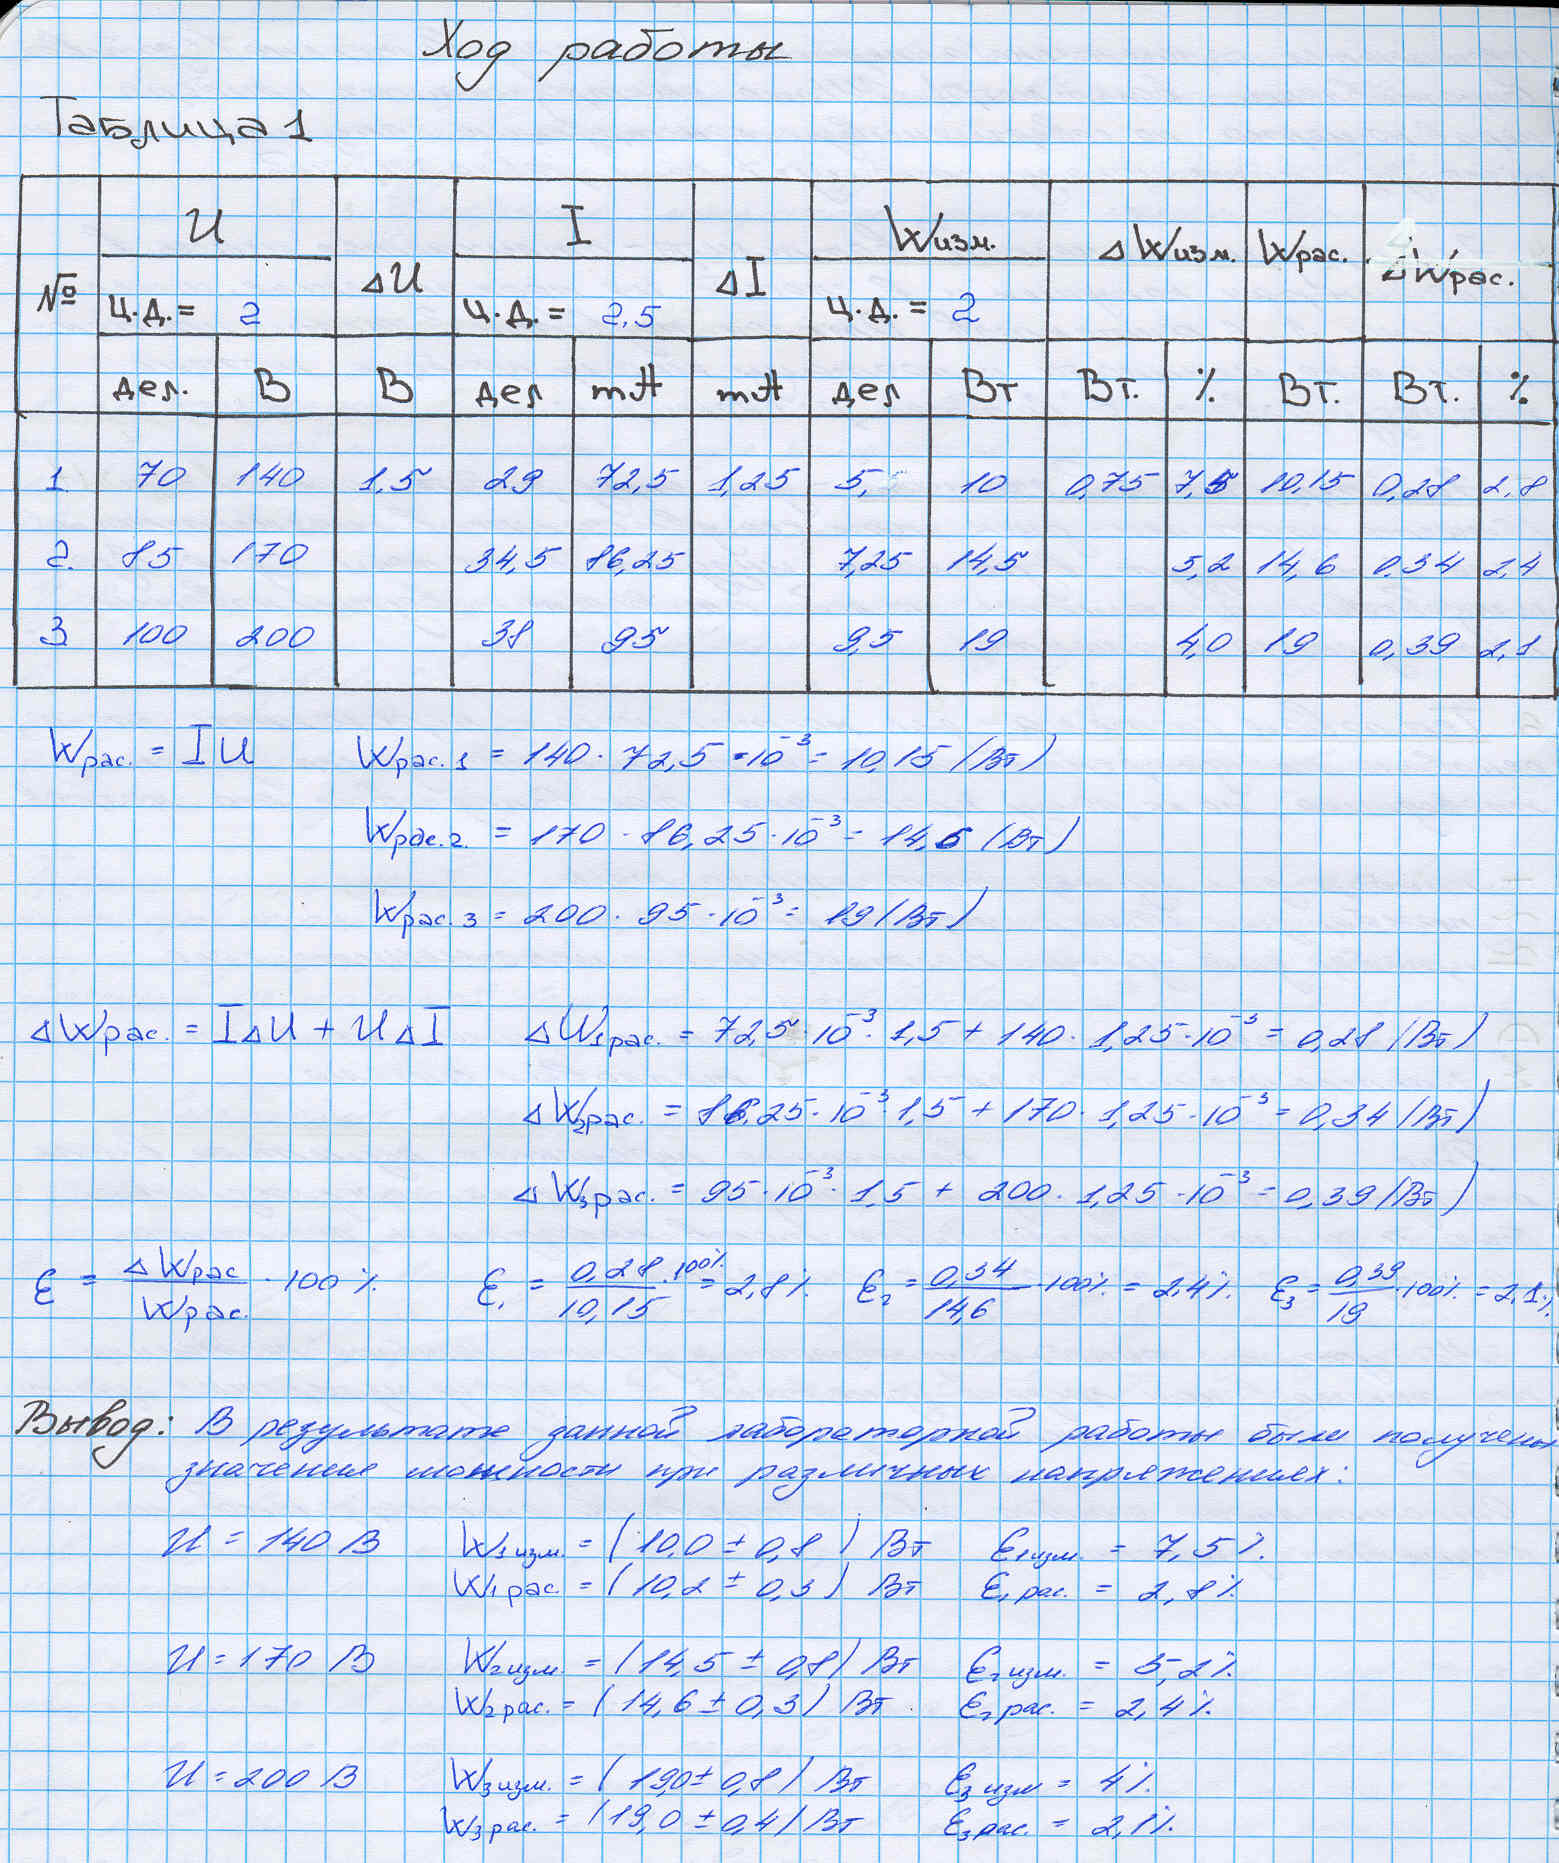 Ход работы
Таблица 1
№ U ΔU I ΔI Wизм. ΔWизм. Wрас. ΔWрас.
ц.д.= 2 ц.д.= 2,5 ц.д.= 2
дел. В В дел mA mA дел Вт Вт. % Вт. Вт. %
1 70 140 1,5 29 72,5 1,25 5, 10 0,75 7,5 10,15 0,28 2,8
2. 85 170 34,5 86,25 7,25 14,5 5,2 14,6 0,34 2,4
3 100 200 38 95 9,5 19 4,0 19 0,39 2,1
Wрас. = IU Wрас.1 = 140 · 72,5 · 10⁻³ = 10,15 (Вт)
Wрас.2. = 170 · 86,25 · 10⁻³ = 14,6 (Вт)
Wрас.3 = 200 · 95 · 10⁻³ = 19 (Вт)
ΔWрас. = IΔU + UΔI ΔW1рас. = 72,5 · 10⁻³ · 1,5 + 140 · 1,25 · 10⁻³ = 0,28 (Вт)
ΔW2рас. = 86,25 · 10⁻³ · 1,5 + 170 · 1,25 · 10⁻³ = 0,34 (Вт)
ΔW3рас. = 95 · 10⁻³ · 1,5 + 200 · 1,25 · 10⁻³ = 0,39 (Вт)
ε = ΔWрас / Wрас. · 100% ε₁ = 0,28 / 10,15 · 100% = 2,8% ε₂ = 0,34 / 14,6 · 100% = 2,4% ε₃ = 0,39 / 19 · 100% = 2,1%
Вывод: В результате данной лабораторной работы были получены
значения мощности при различных напряжениях:
U = 140 В W1изм. = (10,0 ± 0,8) Вт ε1изм. = 7,5%.
W1рас. = (10,2 ± 0,3) Вт ε1рас. = 2,8%
U = 170 В W2изм. = (14,5 ± 0,8) Вт ε2изм. = 5,2%
W2рас. = (14,6 ± 0,3) Вт. ε2рас. = 2,4%.
U = 200 В W3изм. = (19,0 ± 0,8) Вт ε3изм = 4%.
W3рас. = (19,0 ± 0,4) Вт ε3рас. = 2,1%.